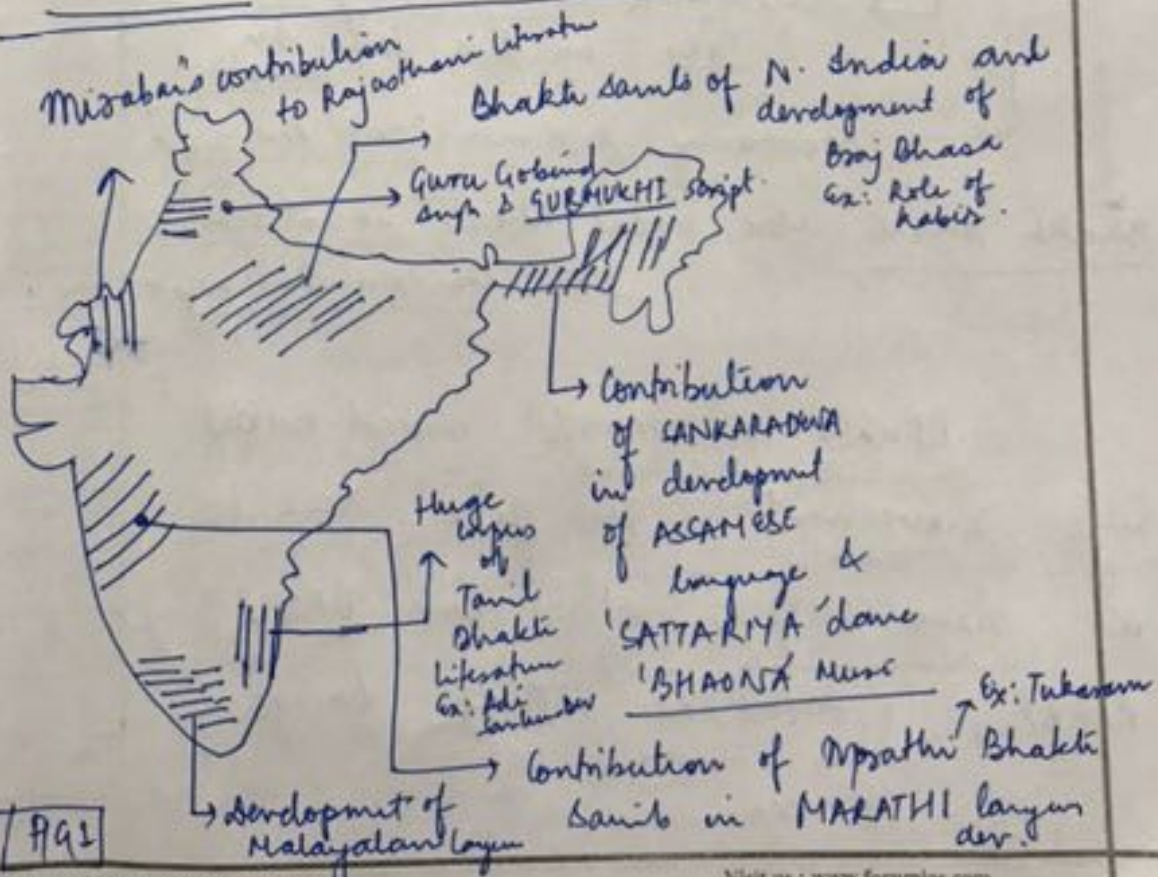 Mirabai's contribution
to Rajasthani Literature
Bhakti saints of N. India and
development of
Braj Bhasa
Ex: Role of
Kabir.
Guru Gobind
Singh & GURMUKHI Script.
Contribution
of SANKARADEVA
in developmt
of ASSAMESE
language &
'SATTARIYA' dance
'BHAONA' Music
Huge
corpus
of
Tamil
Bhakti
Literature
Ex: Adi
Contribution of Marathi Bhakti
Ex: Tukaram
Saints in MARATHI
dev.
Developmt of
Malayalam
FIG1
Visit us: www.forumias.com